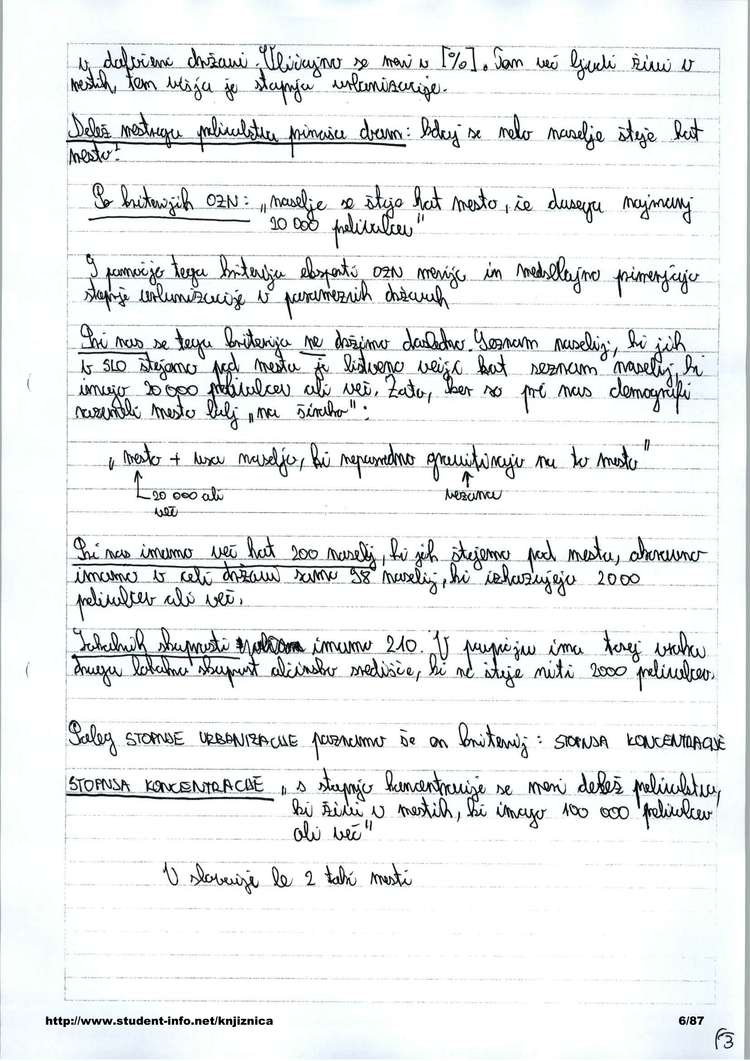 v določeni državi. Običajno se meri v [%]. Tam več ljudi živi v
mestih, tem višja je stopnja urbanizacije.
Delež mestnega prebivalstva prinaša dvom: kdaj se neko naselje šteje kot
mesto!
Po kriterijih OZN: „naselje se šteje kot mesto, če dosega najmanj
20 000 prebivalcev"
S pomočjo tega kriterija eksperti OZN merijo in medsebojno primerjajo
stopnje urbanizacije v posameznih državah
Pri nas se tega kriterija ne držimo dosledno. Seznam naselij, ki jih
v SLO štejemo pod mesta je bistveno večji kot seznam naselij, ki
imajo 20 000 prebivalcev ali več. Zato, ker so pri nas demografi
razumeli mesto bolj „na široko":
„mesto + vsa naselja, ki neposredno gravitirajo na to mesto"
20 000 ali
več
vezana
Pri nas imamo več kot 200 naselij, ki jih štejemo pod mesta, obravnavno
imamo v celi državi samo 98 naselij, ki izkazujejo 2000
prebivalcev ali več.
Lokalnih skupnosti imamo 210. V povprečju ima torej vsaka
druga lokalna skupnost občinsko središče, ki ne šteje niti 2000 prebivalcev.
Poleg STOPNJE URBANIZACIJE poznamo še en kriterij: STOPNJA KONCENTRACIJE
STOPNJA KONCENTRACIJE „s stopnjo koncentracije se meri delež prebivalstva,
ki živi v mestih, ki imajo 100 000 prebivalcev
ali več"
V sloveniji le 2 taki mesti
http://www.student-info.net/knjiznica
6/87
3